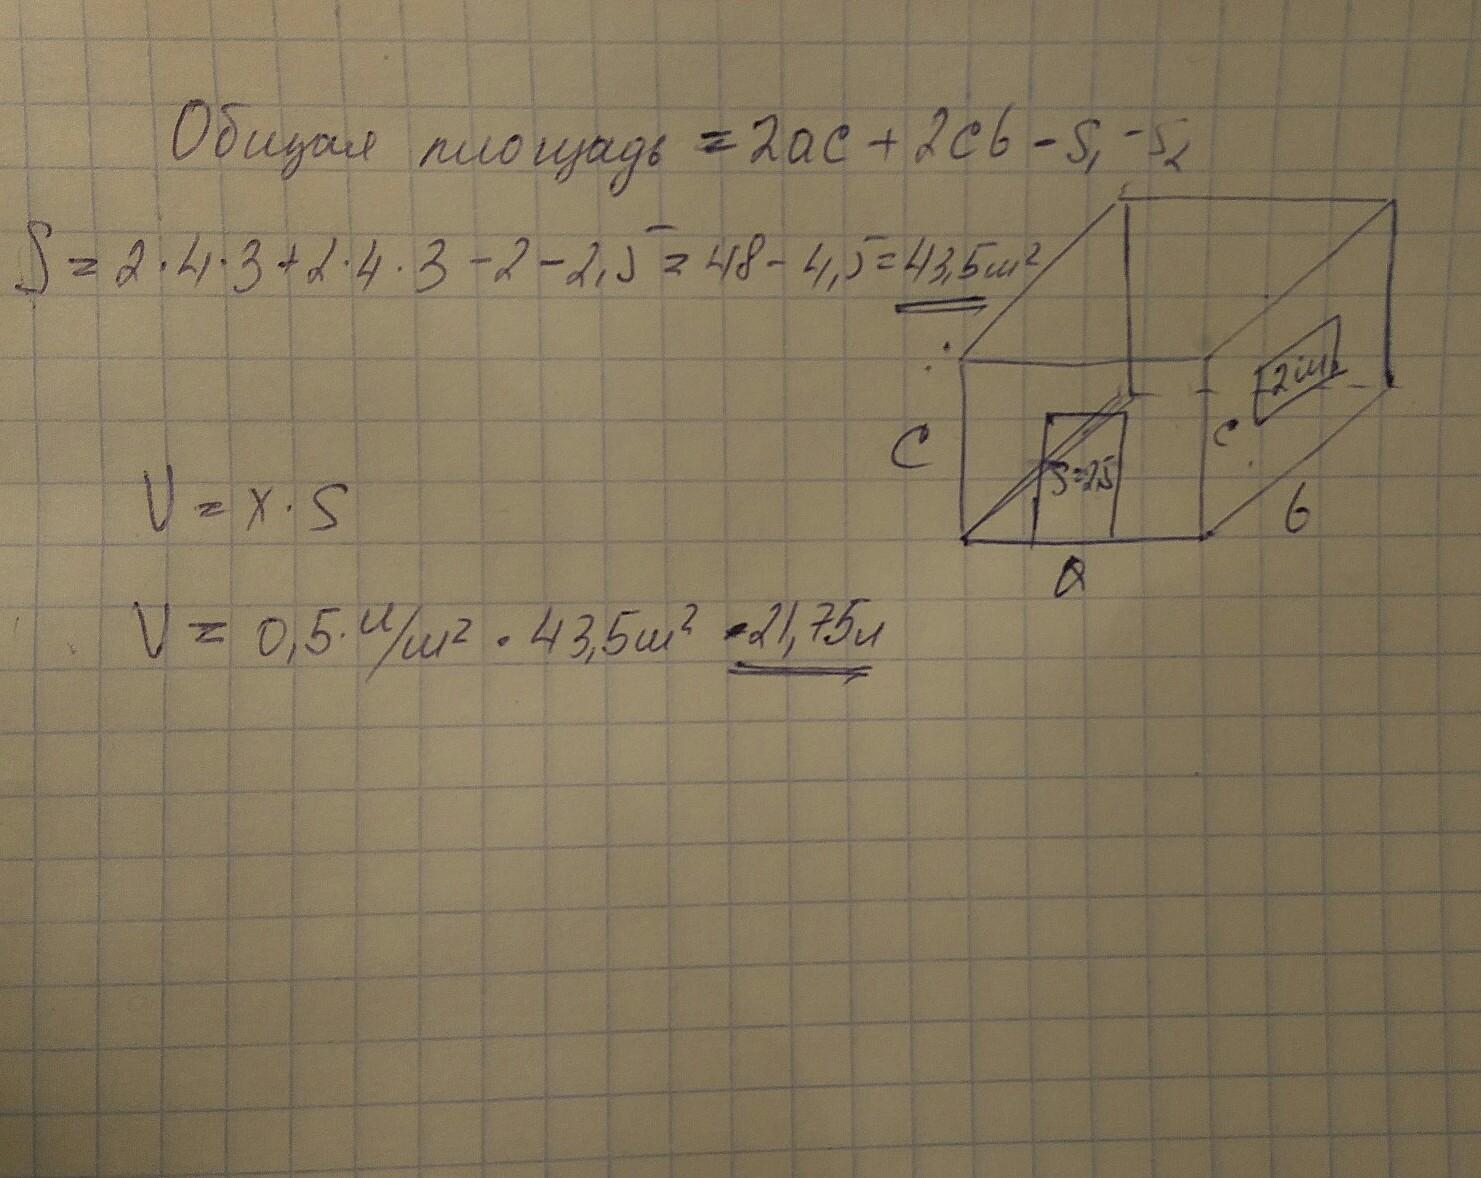 Общая площадь = 2ac + 2cb - S₁ - S₂
S = 2·4·3 + 2·4·3 - 2 - 2,5 = 48 - 4,5 = 43,5 м²
2 м²
C
c
S=2,5
V = x · S
b
a
V = 0,5 · л/м² · 43,5 м² = 21,75 л